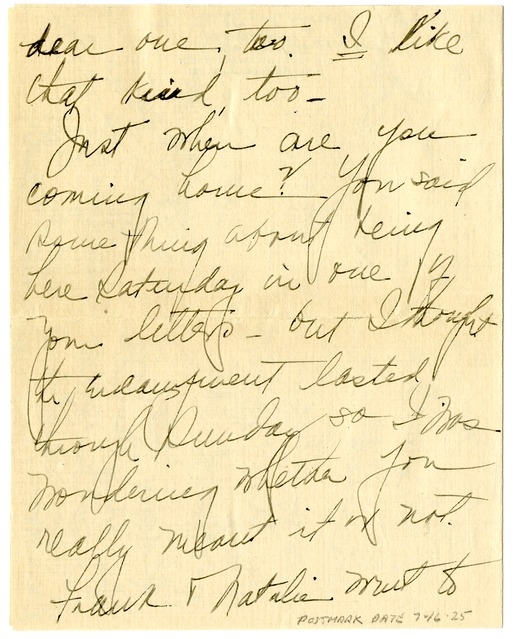 dear one, too. I like
that kind, too -
Just when are you
coming home? You said
something about being
here Saturday in one of
your letters - but I thought
the encampment lasted
through Sunday so I was
wondering whether you
really meant it or not.
Frank & Natalie went to
POSTMARK DATE 7-16-25